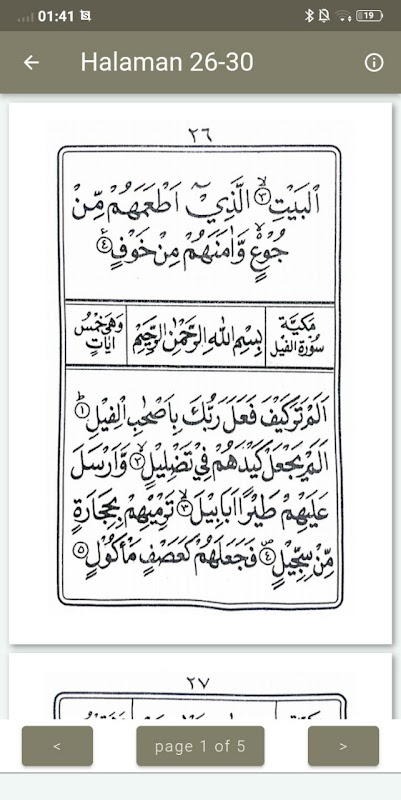 01:41 19
Halaman 26-30
٢٦
الْبَيْتِ ۙ ٣ الَّذِيْٓ اَطْعَمَهُمْ مِّنْ
جُوْعٍ ۙ وَّاٰمَنَهُمْ مِّنْ خَوْفٍ ٤
مَكِّيَّة
سُوْرَةُ الْفِيْل
بِسْمِ اللهِ الرَّحْمٰنِ الرَّحِيْمِ
وَهِيَ خَمْسُ
اٰيَاتٍ
اَلَمْ تَرَ كَيْفَ فَعَلَ رَبُّكَ بِاَصْحٰبِ الْفِيْلِ ۗ ١
اَلَمْ يَجْعَلْ كَيْدَهُمْ فِيْ تَضْلِيْلٍ ۙ ٢ وَّاَرْسَلَ
عَلَيْهِمْ طَيْرًا اَبَابِيْلَ ۙ ٣ تَرْمِيْهِمْ بِحِجَارَةٍ
مِّنْ سِجِّيْلٍ ۖ ٤ فَجَعَلَهُمْ كَعَصْفٍ مَّأْكُوْلٍ ٥
٢٧
< page 1 of 5 >